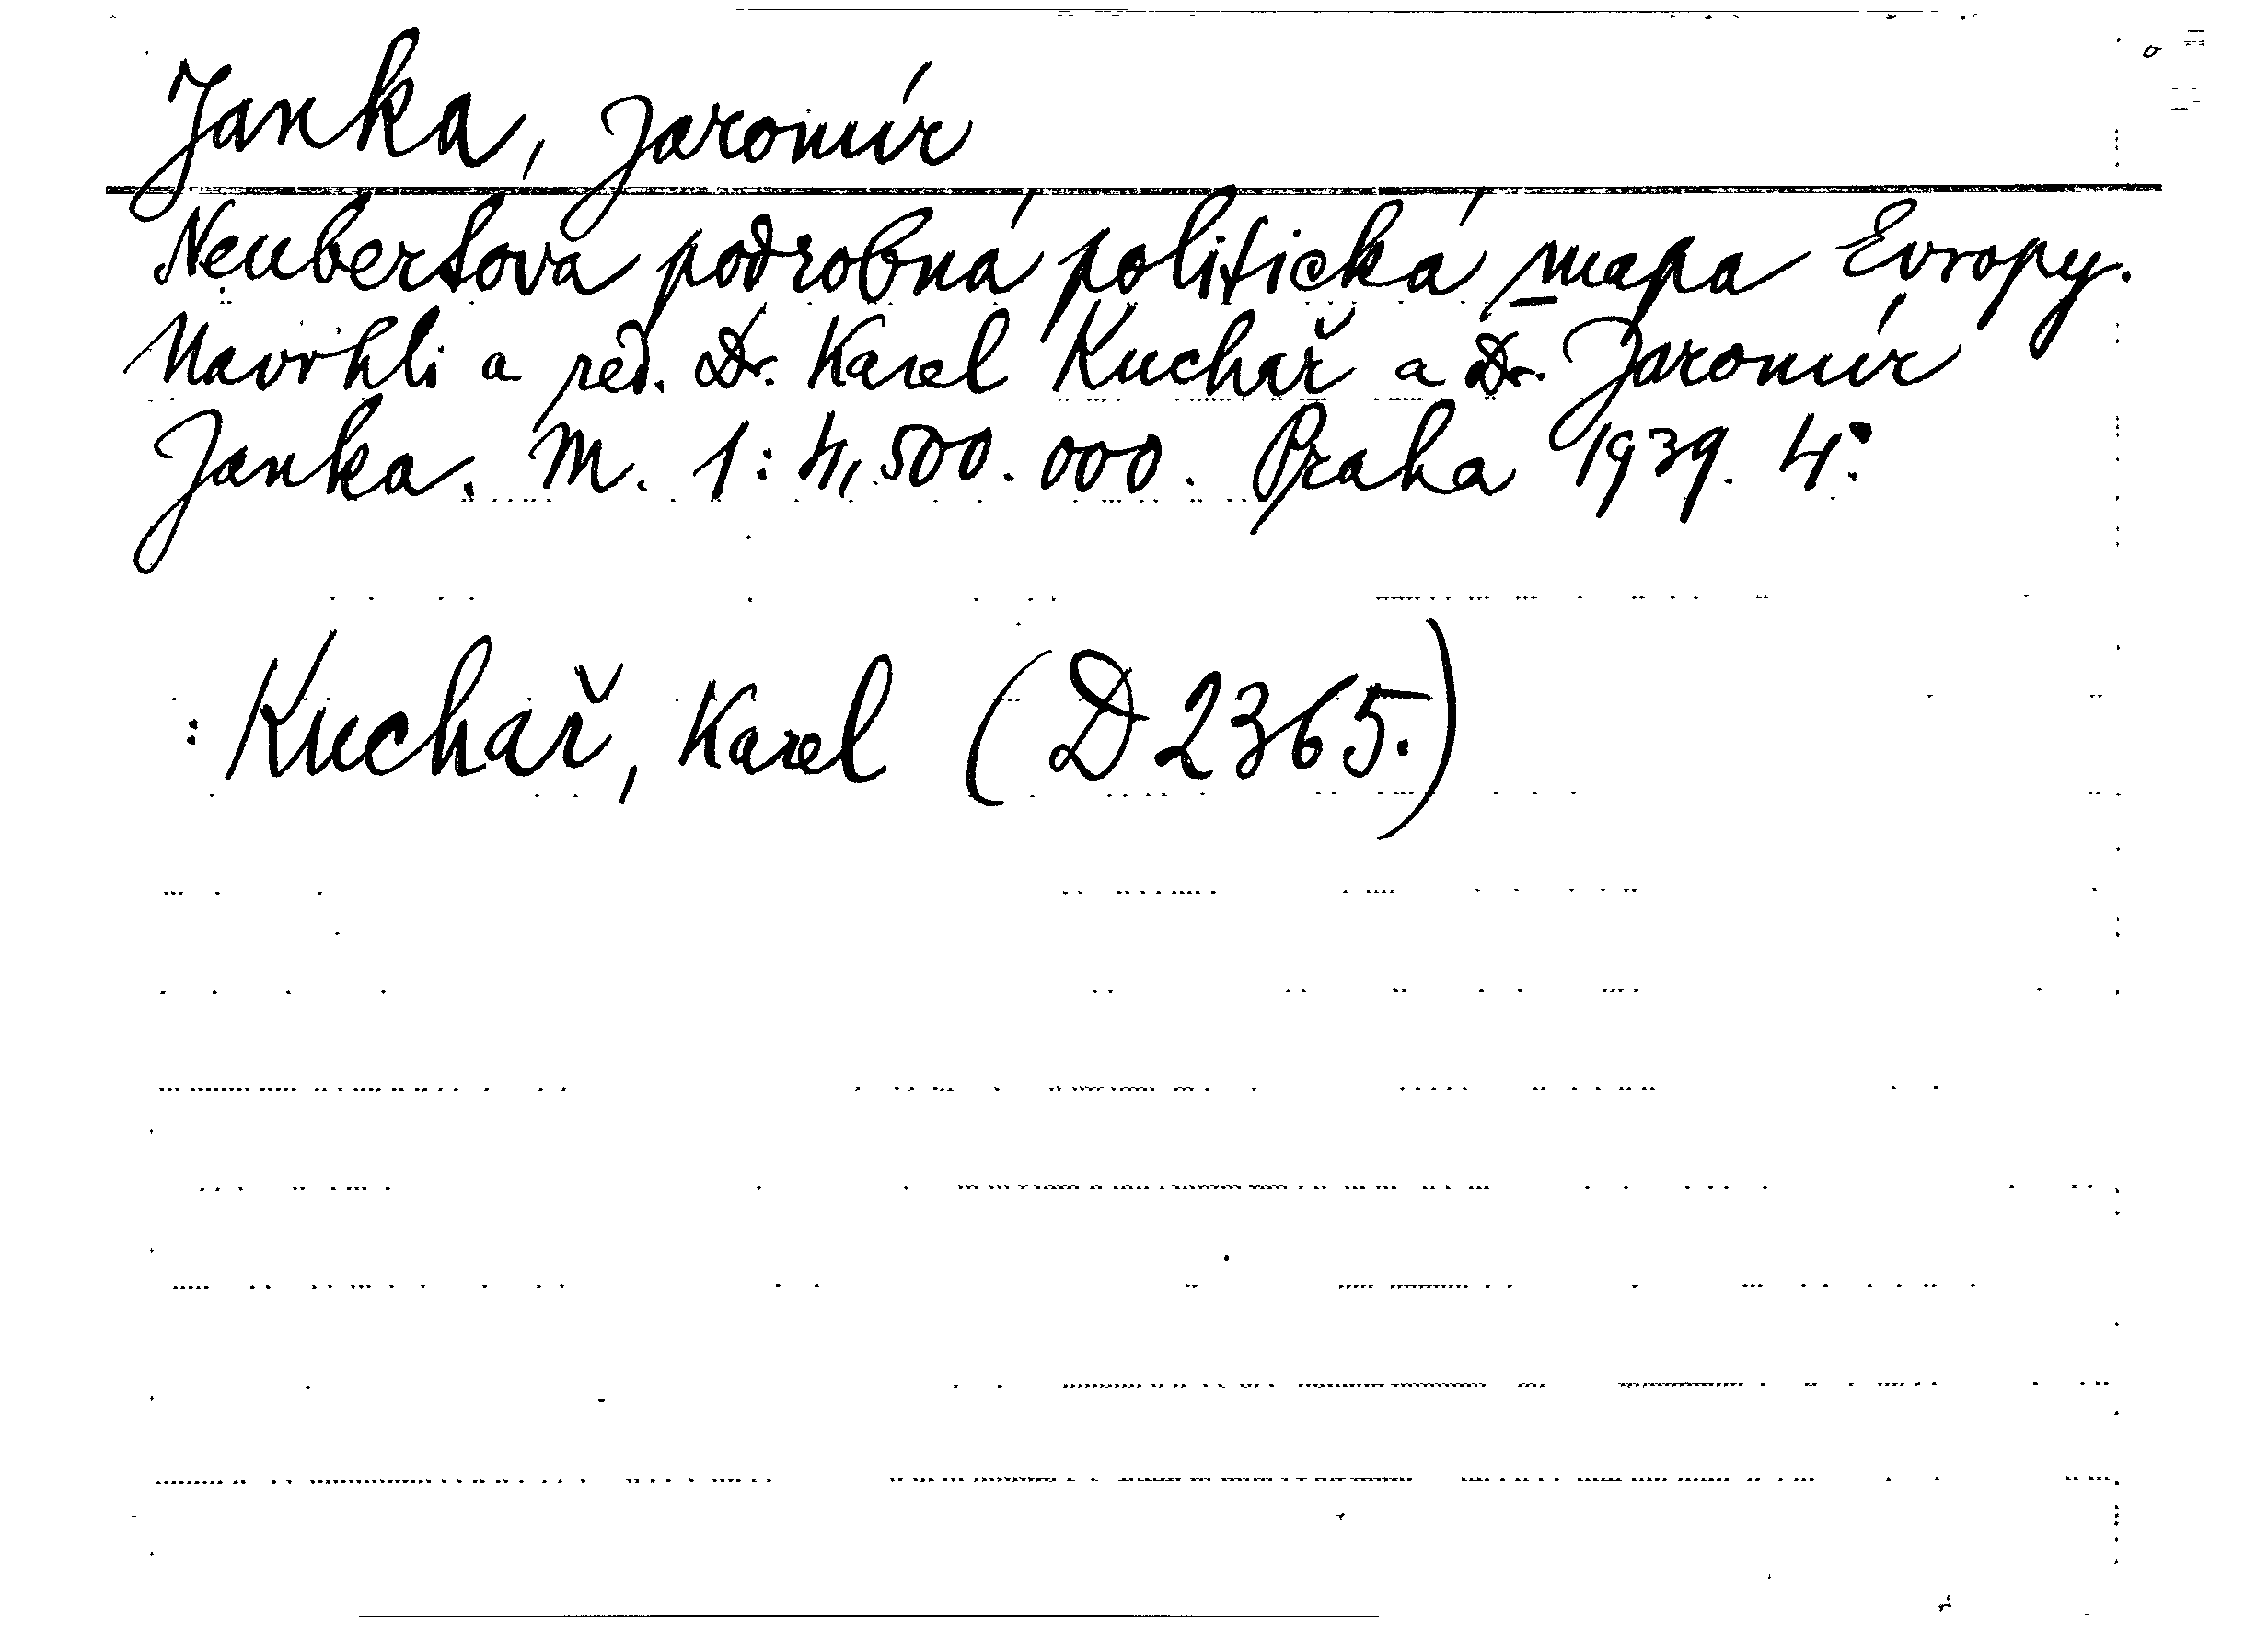 Janka, Jaromír
Neubertova podrobná politická mapa Evropy.
Navrhli a red. Dr. Karel Kuchař a Dr. Jaromír
Janka. M. 1:4,500.000. Praha 1939. 4°.
: Kuchař, Karel (D 2365.)